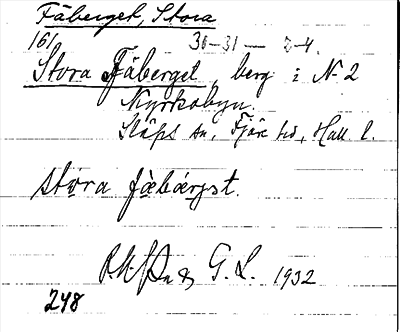 Fäberget, Stora
161 30-31 — 2-4.
Stora Fäberget, berg i N 2
Kyrkobyn.
Släps sn, Fjäre hd, Hall l.
stora fäbärjst.
G. L. 1932
248